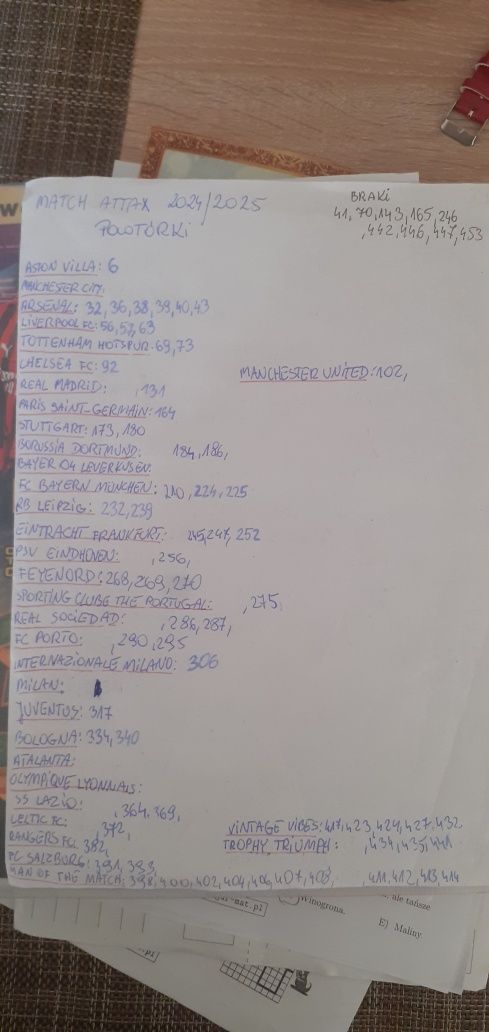 MATCH ATTAX 2024/2025
POWTÓRKI
BRAKI
41, 70, 143, 165, 246
,442, 446, 447, 453
ASTON VILLA: 6
MANCHESTER CITY:
ARSENAL: 32, 36, 38, 39, 40, 43
LIVERPOOL FC: 56, 57, 63
TOTTENHAM HOTSPUR: 69, 73
CHELSEA FC: 92
MANCHESTER UNITED: 102,
REAL MADRID: ,131
PARIS SAINT-GERMAIN: 164
STUTTGART: 173, 180
BORUSSIA DORTMUND: 184, 186,
BAYER 04 LEVERKUSEN:
FC BAYERN MÜNCHEN: 210, 224, 225
RB LEIPZIG: 232, 239
EINTRACHT FRANKFURT: 245, 247, 252
PSV EINDHOVEN: ,256,
FEYENORD: 268, 269, 270
SPORTING CLUBE THE PORTUGAL: ,275,
REAL SOCIEDAD: ,286, 287,
FC PORTO: ,290, 295
INTERNAZIONALE MILANO: 306
MILAN:
JUVENTUS: 317
BOLOGNA: 334, 340
ATALANTA:
OLYMPIQUE LYONNAIS:
SS LAZIO: ,364, 369,
CELTIC FC: ,372,
VINTAGE VIBES: 417, 423, 424, 427, 432
RANGERS FC: 382,
TROPHY TRIUMPH: ,434, 435, 441
FC SALZBURG: 391, 393,
MAN OF THE MATCH: 398, 400, 402, 404, 406, 407, 408, ,411, 412, 413, 414
mat.pl
Winogrona.
, ale tańsze
E) Maliny
.pl